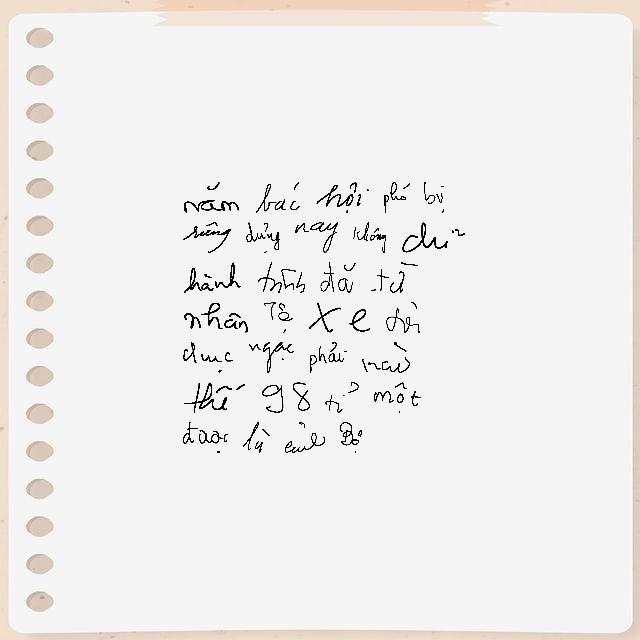 năm bác hội phó bị
riêng dựng nay không
hành trình đã từ
nhân Tệ xe dời
dục ngạc phải nào
thế 98 tỉ một
được là của Bộ